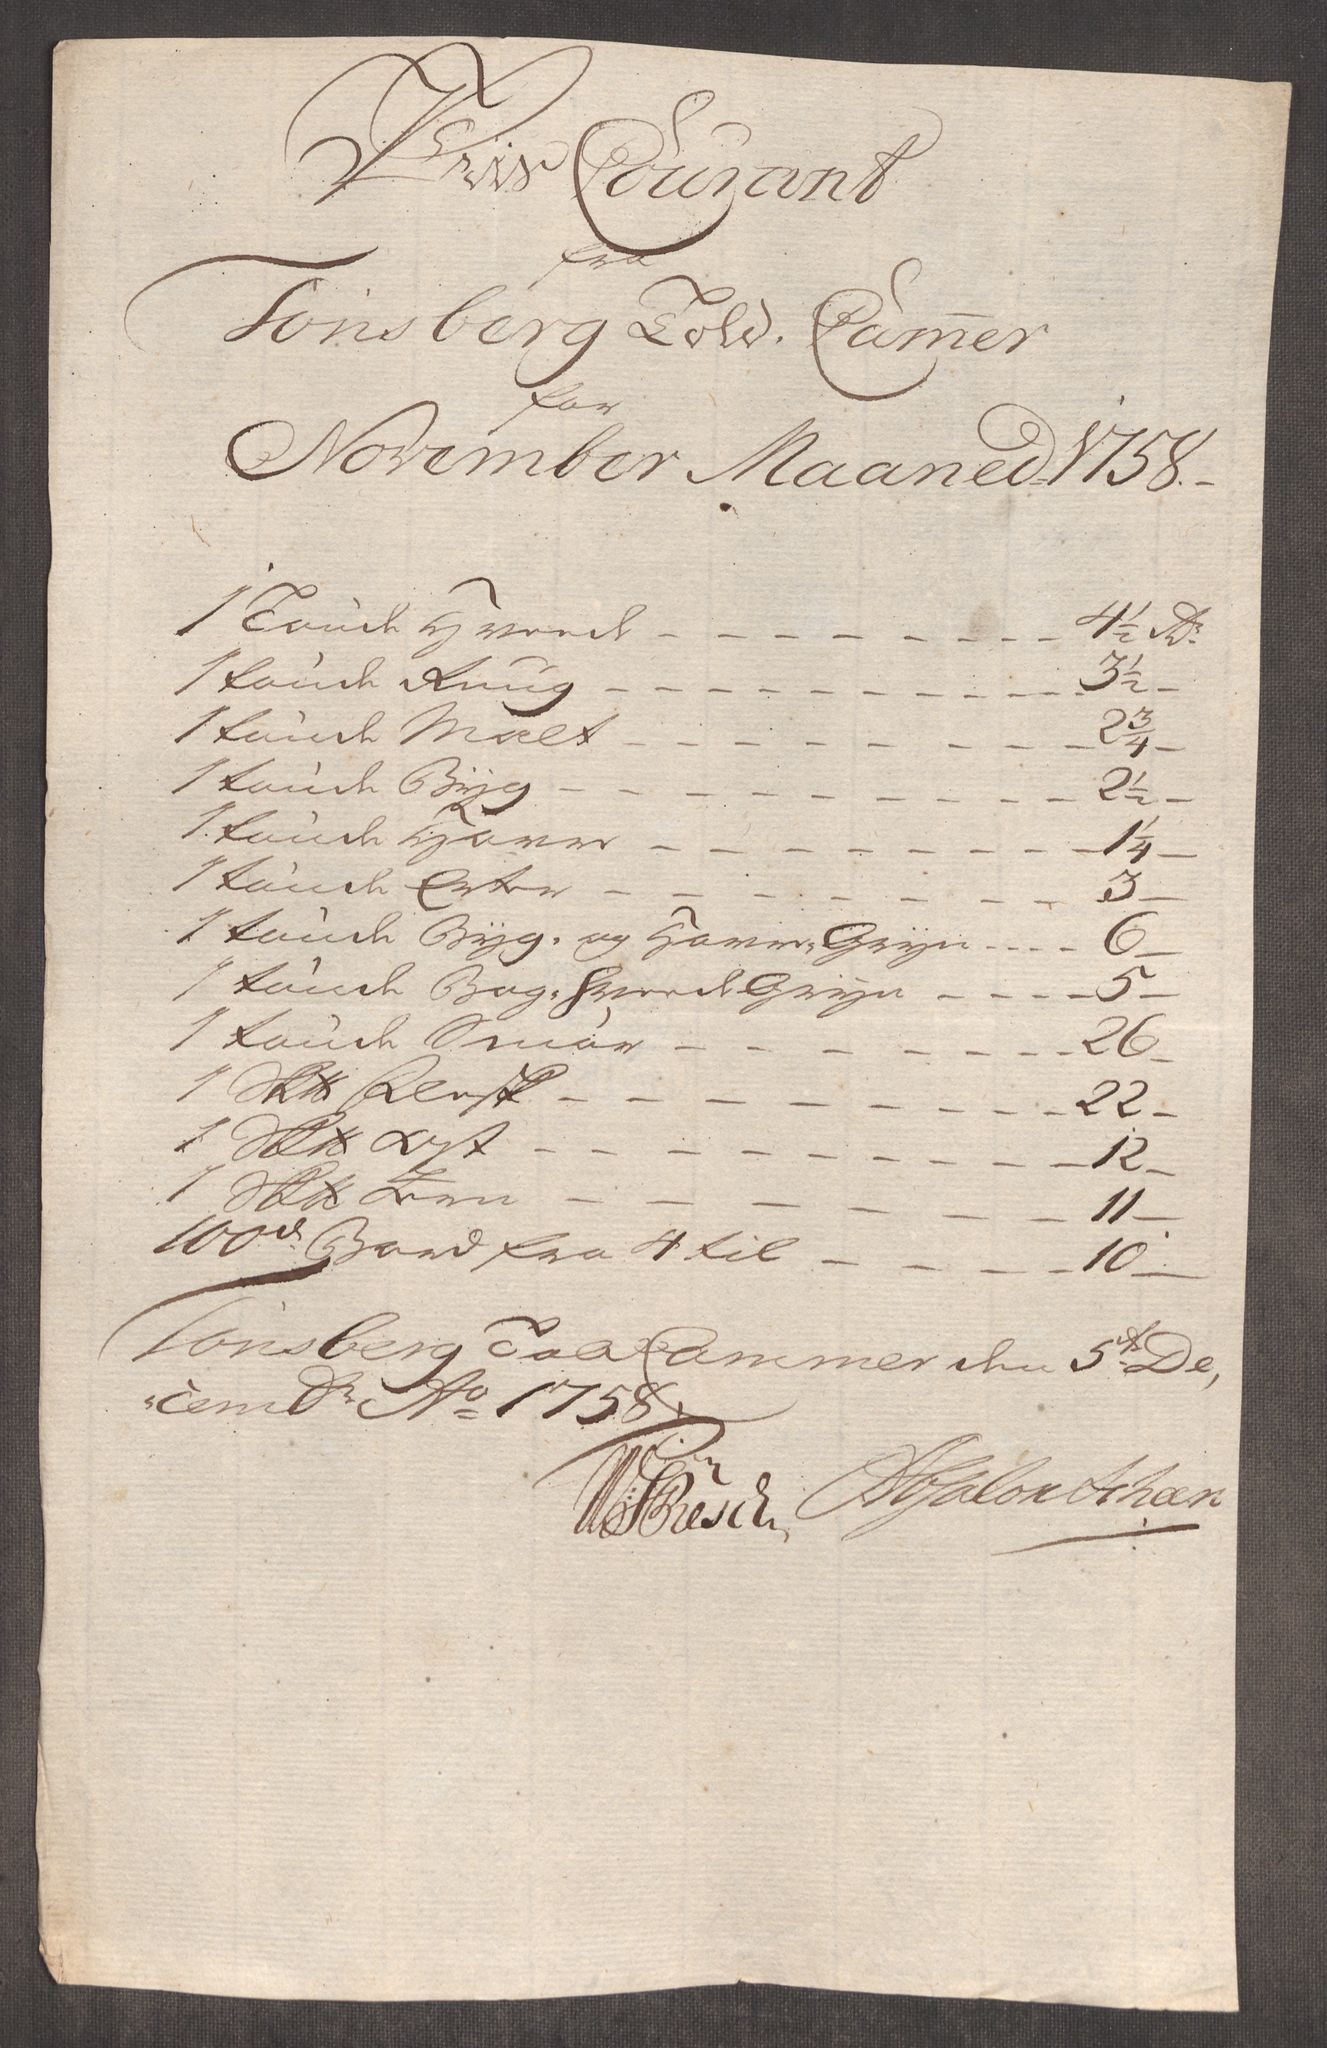 Priis Courant
fra
Tønsberg Told. Cam̅er
for
November Maaned 1758.
1 Tønde Hvede 4½ Rdr
1 tønde Rug 3½
1 tønde Malt 2¾
1 tønde Byg 2½
1 tønde Havre 1¼
1 tønde Erter 3
1 tønde Byg- og Havre-Gryn 6
1 tønde Bog-hvede Gryn 5
1 tønde Smør 26
1 Sk℔ 22
1 Sk℔ 12
1 Sk℔ 11
100de Bord fra 4 til 10
Tønsberg Told Cammer den 5te De,
cembr Ao 1758
Resch, Absalon